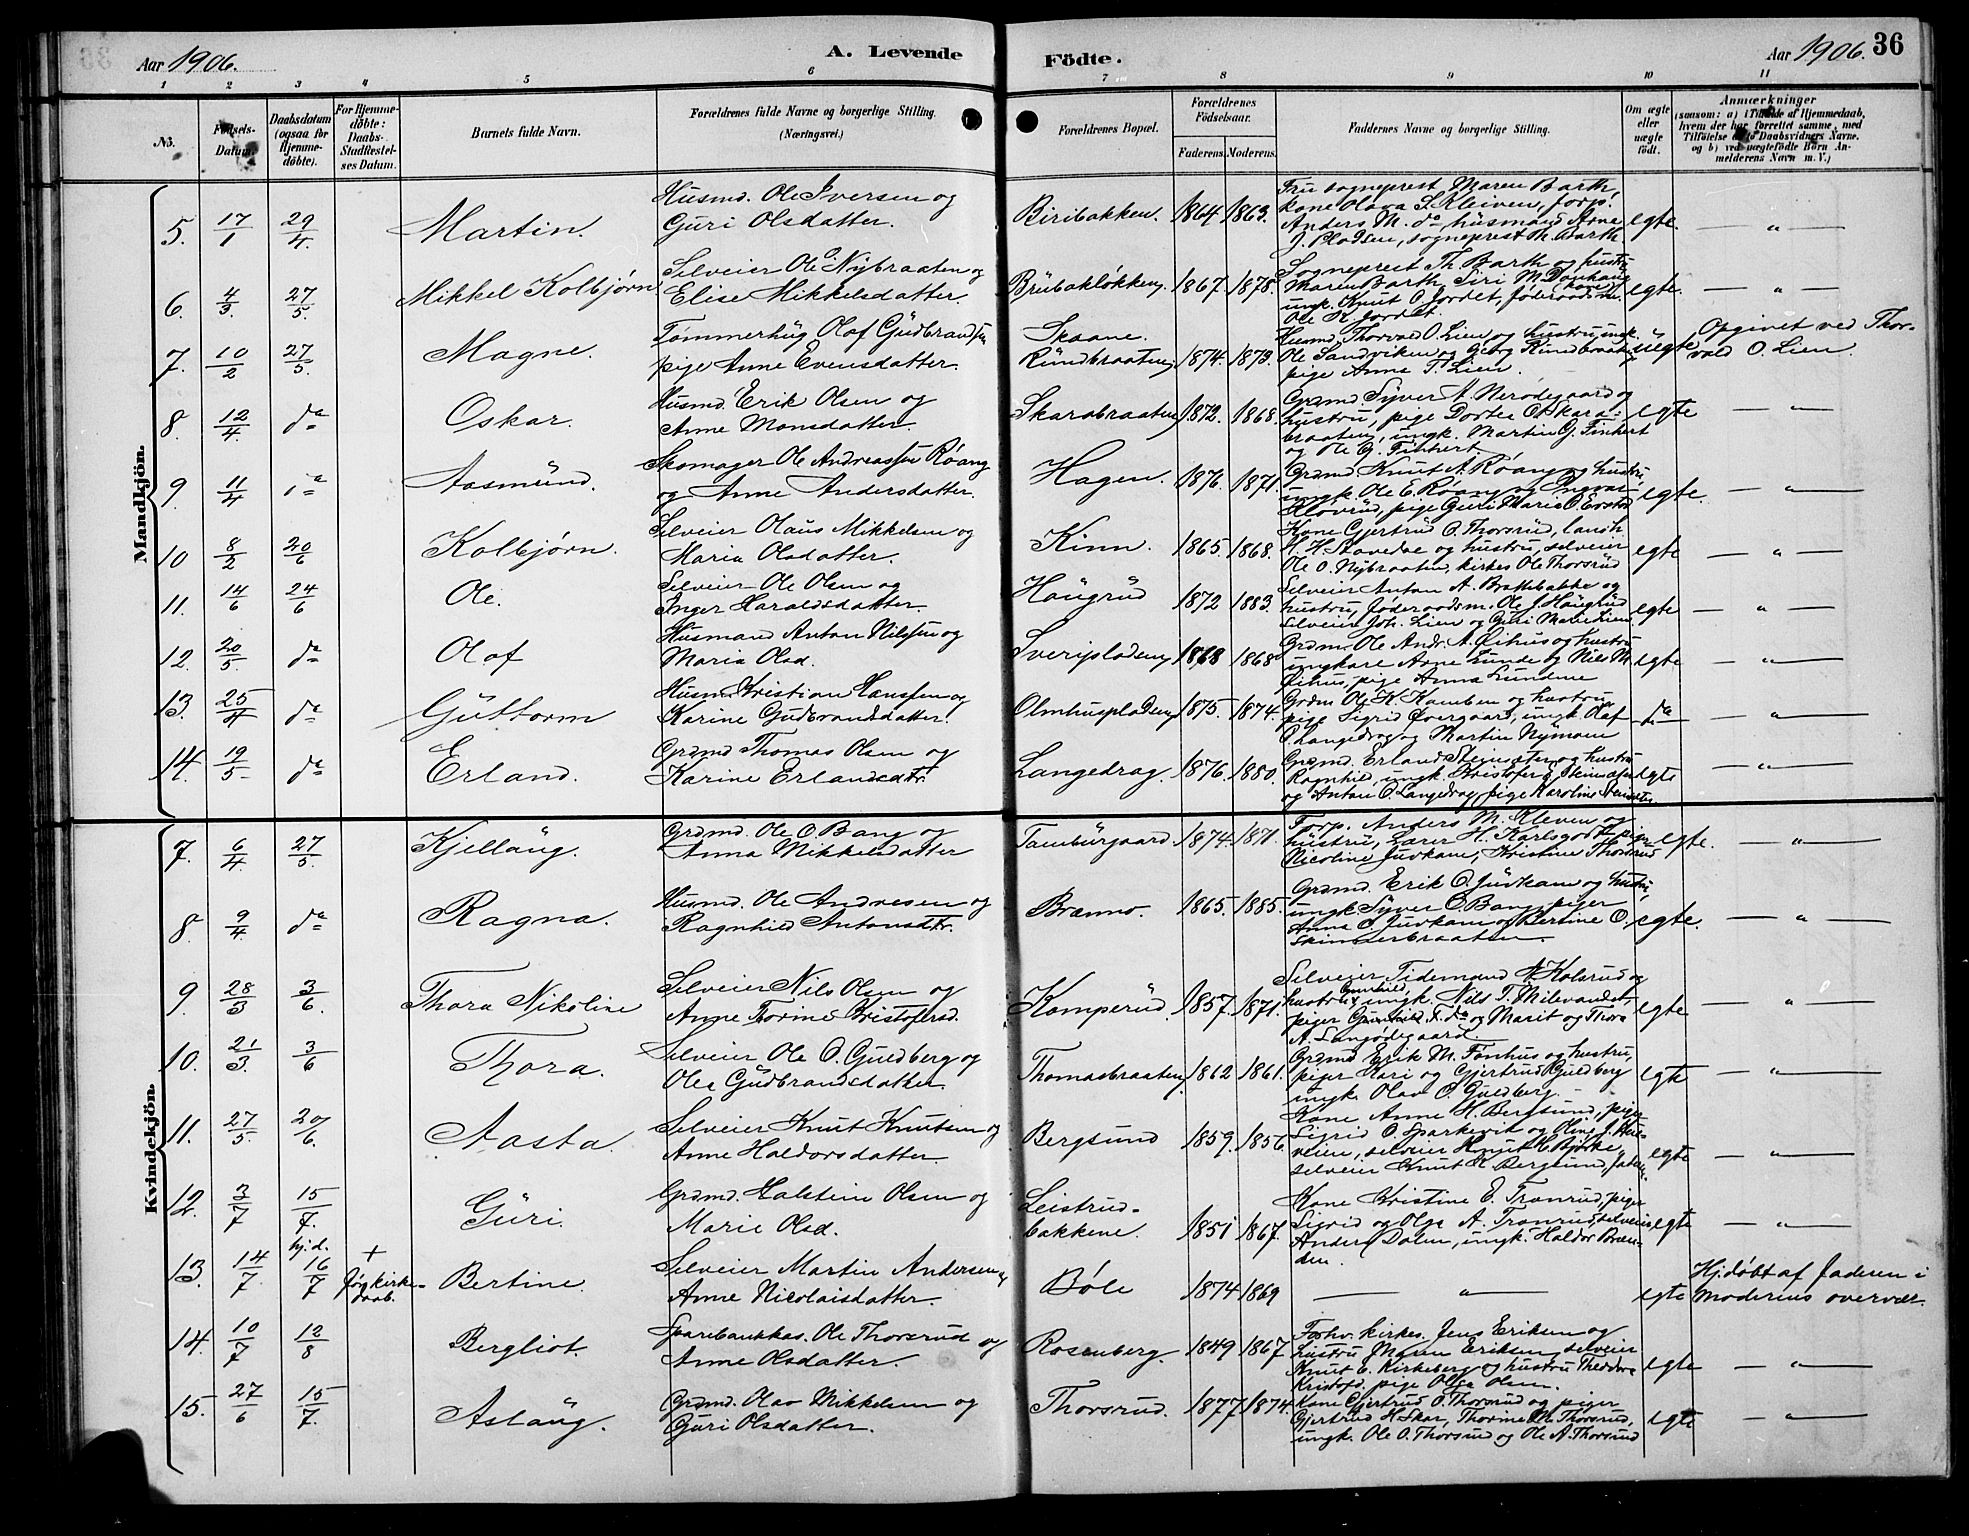 Aar 1906.
A. Levende
Födte.
Aar 1906. 36
1 2 3 4 5 6 7 8 9 10 11
No. Fødsels-Datum. Daabsdatum (ogsaa för Hjemmedöbte). For Hjemmedöbte: Daabs-Stadfæstelses Datum. Barnets fulde Navn. Forældrenes fulde Navne og borgerlige Stilling. (Næringsvei.) Forældrenes Bopæl. Forældrenes Födselsaar. Faderens. Moderens. Faddernes Navne og borgerlige Stilling. Om ægte eller uægte födt. Anmærkninger
Mandkjön.
5. 17/1 29/4. Martin. Husmd. Ole Iversen og
Guri Olsdatter. Biribakken. 1864. 1863. Fru sogneprest Maren Barth,
kone Olava S. Kleiven, forp.
Anders M. do, husmand Arne
J. Pladsen, sogneprest Th. Barth. egte. — " —
6. 4/3. 27/5. Mikkel Kolbjørn Selveier Ole Nybraaten og
Elise Mikkelsdatter. Brubakløkken, 1867. 1878. Sogneprest Th. Barth og hustru
Maren Barth, Siri M.
ungk. Knut O. Jordet,
Ole K. Jordet. egte. — " —
7. 10/2 27/5. Magne. Tømmerhug. Olaf Gudbrandsen
pige Anne Evensdatter. Skaane.
Rundbraaten, 1874. 1873. Husmd. Thorvald O. Lien og hustru, ungk.
Ole Sandviken og Georg Rundbraaten
pige Anna T. Lien. uegte Opgivet ved Thor-
vald O. Lien.
8. 12/4 do Oskar. Husmd. Erik Olsen og
Anne Monsdatter. Skarabraaten, 1872. 1868. Grdmd. Syver A. Nerødegaard og
hustru, pige Dortea O. Skara-
braaten, ungk. Martin G. Finhert
og Ole G. Finhert. egte — " —
9. 11/4 do Aasmund. Skomager Ole Andreassen Røang
og Anne Andersdatter. Hagen. 1876. 1871. Grdmd. Knut A. Røang og hustru,
ungk. Ole E. Røang og Ingvar
pige Guri Marie O. egte. — " —
10 8/2 20/6 Kolbjørn. Selveier Olaus Mikkelsen og
Maria Olsdatter. Kinn. 1865. 1868. Kone Gjertrud O. Thorsrud, landh.
H. H. og hustru, selveier
Ole O. Nybraaten, kirkes. Ole Thorsrud egte — " —
11. 14/6 24/6 Ole. Selveier Ole Olsen og
Inger Haraldsdatter. Haugrud 1872 1883. Selveier Anton A. Brattebakke og
hustru, Ole J. Haugrud
selveier Joh. Lien og Guri Marie Lien egte — " —
12. 20/5. do Olaf Husmand Anton Nilssen og
Maria Olsd. Sveripladsen, 1868 1868 Grdm. Ole Andr. A. Øihus og hustru
ungkare Arne Lunde og Nils M.
Øihus, pige Anna Lundene egte — " —
13. 25/4 do Guttorm Husm. Kristian Hanssen og
Karine Gudbrandsdatter. Olmhuspladsen, 1875. 1874. Grdm. Ole K. og hustru
pige Sigrid Øvergaard, ungk. Olaf
O. Langedrag og Martin Nymoen do — " —
14. 19/5. do Erland. Grdmd. Thomas Olsen og
Karine Erlandsdtr. Langedrag. 1876. 1880. Grdmd. Erland Steinsæter og hustru
Ragnhild, ungk. Kristofer E. Steinsæter
og Anton O. Langedrag, pige Karoline Steinsæter egte — " —
Kvindekjön.
7. 6/4. 27/5. Kjellaug. Grdmd. Ole O. Bang og
Anna Mikkelsdatter Tamburgaard. 1874. 1871. Forp. Anders M. Kleven og
hustru, Lærer H. Karlsgodt, piger
Nicoline Juvkam, Kristine Thorsrud egte. — " —
8. 9/4. do Ragna. Husmd. Ole Andresen og
Ragnhild Antonsdtr. Brænno. 1865. 1885. Grdmd. Erik O. Juvkam og hustru,
ungk. Syver O. Bang, piger
Anna O. Juvkam og Bertine O.
Skinnerbraaten. egte. — " —
9 28/3 3/6. Thora Nikoline Selveier Nils Olsen og
Anne Torine Kristofersd. Komperud. 1857. 1871. Selveier Tidemand N. Kolsrud og
hustru Gunhild, ungk. Nils T. Milevandet,
piger Gunhild T. do og Marit og Thora
A. Langødegaard egte — " —
10. 21/3. 3/6 Thora. Selveier Ole O. Guldberg og
Olea Gudbrandsdatter. Thomasbraaten, 1862 1861. Grdmd. Erik M. Fønhus og hustru,
piger Kari og Gjertrud Guldberg
ungk. Olav O. Guldberg. egte — " —
11. 27/5. 20/6. Aasta. Selveier Knut Knutsen og
Anne Haldorsdatter. Bergsund 1859. 1856. Kone Anne H. Bergsund, piger
Sigrid O. Sparkevik og Oline J.
veien, selveier Knut H. Bjørke,
selveier Knut K. Bergsund, egte — " —
12. 3/7 15/7. Guri. Grdmd. Halstein Olsen og
Marie Olsd. Leistrud-
bakkene. 1851 1867. Kone Kristine E. Tronrud, piger
Sigrid og Olga A. Tronrud, selveier
Anders Dalen, ungk. Haldor Bræn-
den. egte — " —
13. 14/7. hj.d. 16/7 + Jøgkirke-
daab. Bertine. Selveier Martin Andersen og
Anne Nicolaisdatter. Bøle 1874 1869 — " — egte Hj.døbt af faderen i
moderens overvær.
14. 10/7 12/8 Bergliot. Sparebankkas. Ole Thorsrud og
Anne Olsdatter. Rosenberg. 1849 1867 Forhv. kirkes. Jens Eriksen og
hustru Maren Eriksen, selveier
Knut E. Kirkeberg og hustru Theodora
Kristofd., pige Olga Olsen. egte — " —
15. 27/6 15/7. Aslaug. Grdmd. Olav Mikkelsen og
Guri Olsdatter. Thorsrud. 1877 1874. Kone Gjertrud O. Thorsrud og piger
Gjertrud H. Skar, Thorine M. Thorsrud,
ungk. Ole O. Thorsrud og Ole A. Thorsrud egte — " —